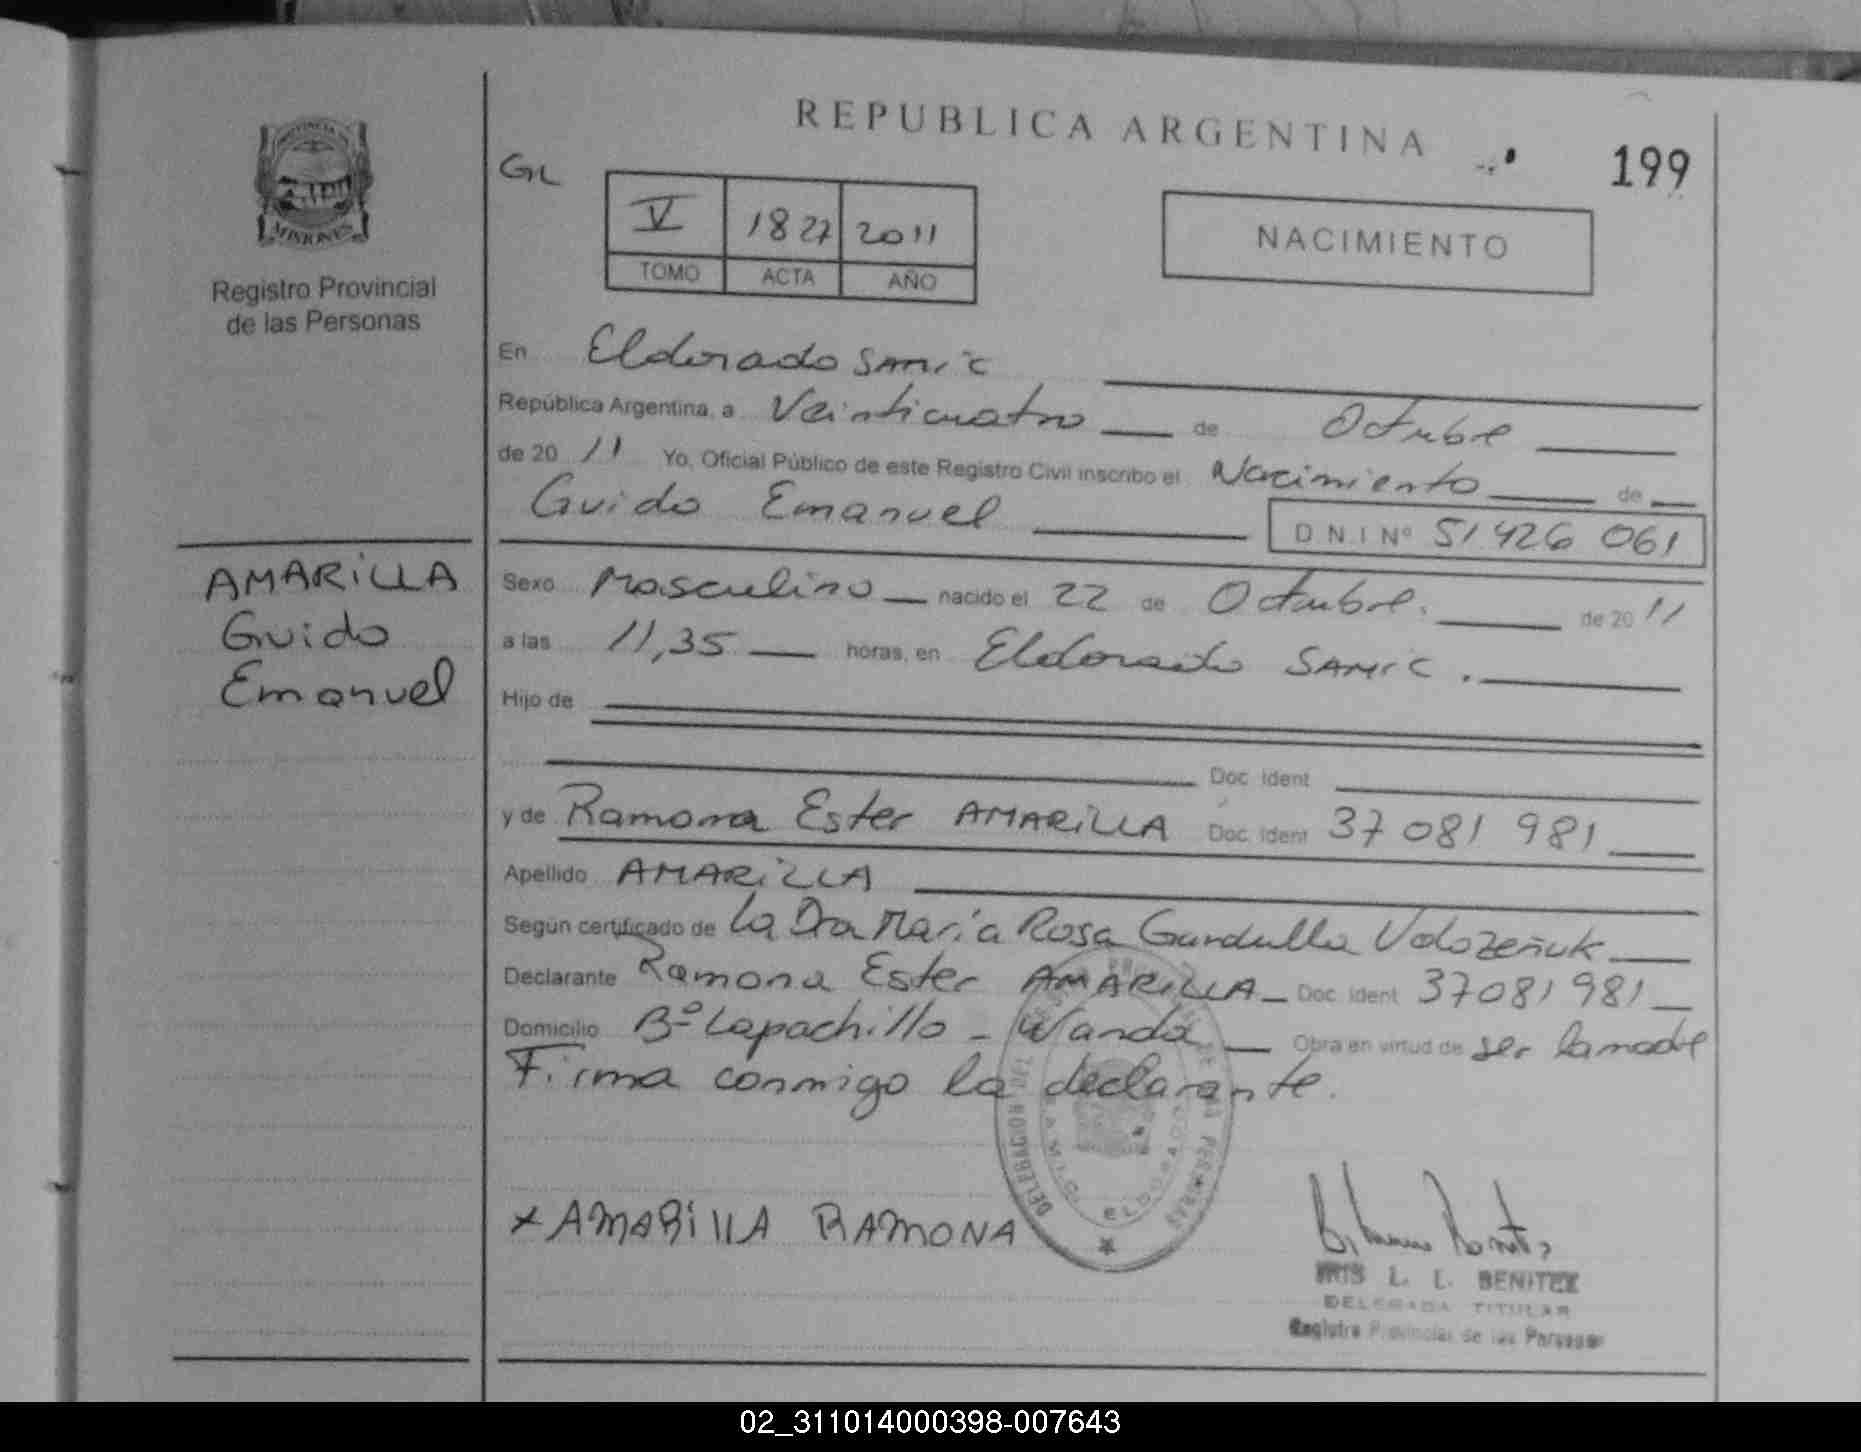 REPUBLICA ARGENTINA
199
GL
V 1827 2011
TOMO ACTA AÑO
NACIMIENTO
PROVINCIA DE
MISIONES
Registro Provincial
de las Personas
En Eldorado SAMIC
República Argentina, a Veinticuatro de Octubre
de 20 11 Yo, Oficial Público de este Registro Civil inscribo el Nacimiento de
Guido Emanuel D.N.I Nº 51 426 061
AMARILLA
Guido
Emanuel
Sexo Masculino nacido el 22 de Octubre. de 20 11
a las 11,35 horas, en Eldorado SAMIC.
Hijo de
Doc. Ident
y de Ramona Ester AMARILLA Doc. Ident 37 081 981
Apellido AMARILLA
Según certificado de la Dra María Rosa
Declarante Ramona Ester AMARILLA Doc. Ident 37081981
Domicilio Bº Lapachillo - Wanda Obra en virtud de ser la madre
Firma conmigo la declarante.
DELEGACION DEL DE LAS PERSONAS
SAMIC ELDORADO
x AMARILLA RAMONA
IRIS L. L. BENITEZ
DELEGADA TITULAR
Registro Provincial de las Personas
02_311014000398-007643